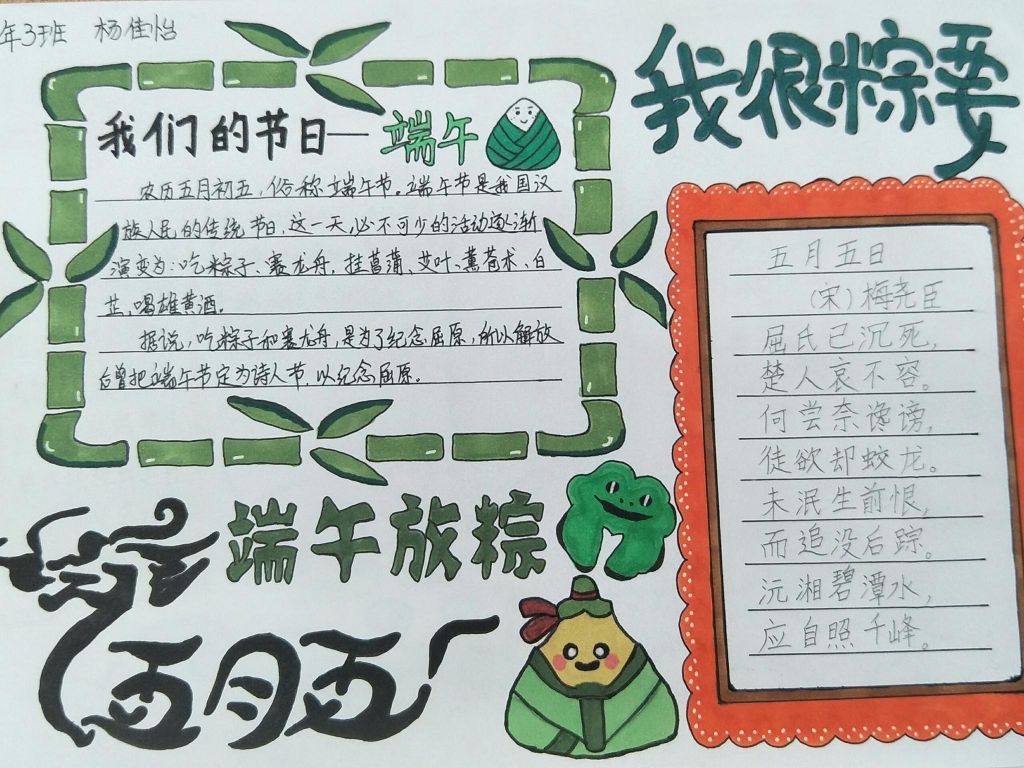 年3班 杨佳怡
我们的节日—端午
农历五月初五，俗称端午节。端午节是我国汉
族人民的传统节日，这一天，必不可少的活动逐渐
演变为：吃粽子、赛龙舟，挂菖蒲、艾叶、薰苍术、白
芷，喝雄黄酒。
据说，吃粽子和赛龙舟，是为了纪念屈原，所以解放
后曾把端午节定为诗人节，以纪念屈原。
我很粽要
五月五日
（宋）梅尧臣
屈氏已沉死，
楚人哀不容。
何尝奈谗谤，
徒欲却蛟龙。
未泯生前恨，
而追没后踪。
沅湘碧潭水，
应自照千峰。
端午放粽
五月五